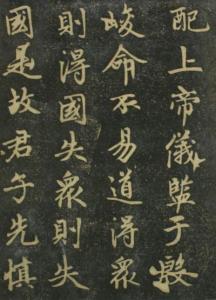 配上帝儀監于殷
峻命不易道得衆
則得國失衆則失
國是故君子先慎